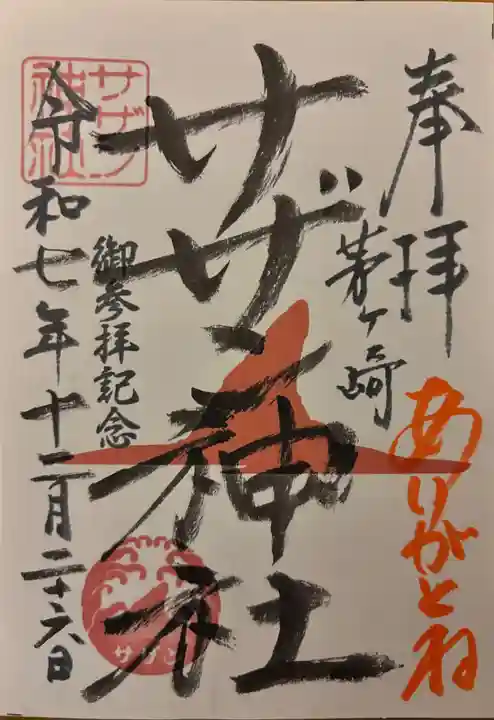 奉拝
茅ヶ崎
ありがとね
サザン神社
御参拝記念
令和七年十二月二十六日
サザン
神社
サザン